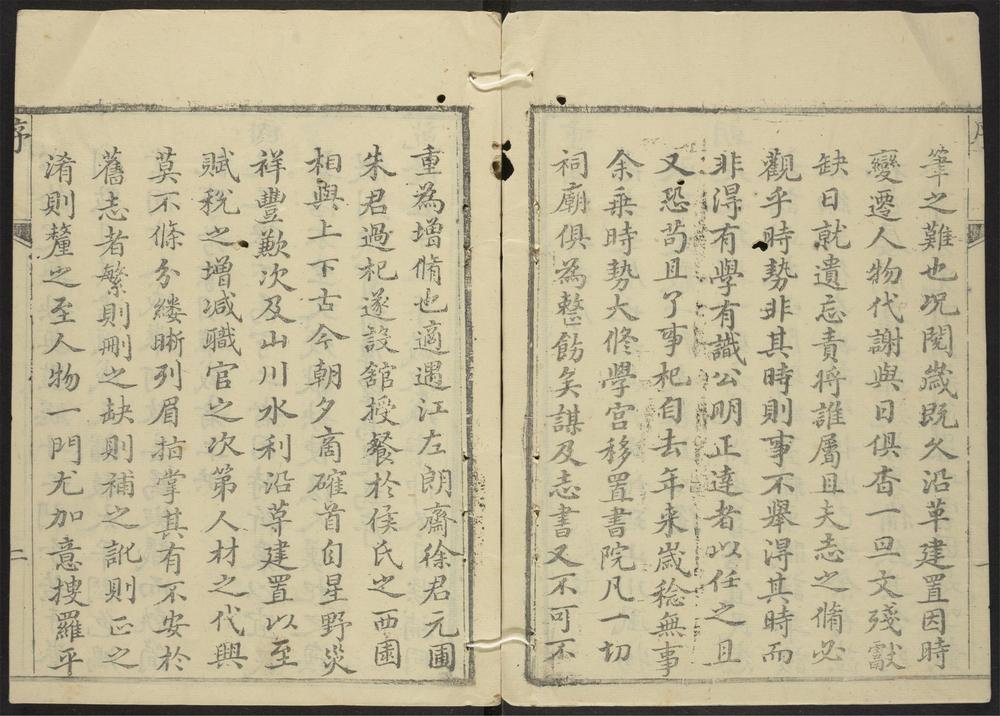 序
筆之難也況閱歲既久沿革建置因時
變遷人物代謝與日俱杳一旦文殘獻
缺日就遺忘責將誰屬且夫志之脩必
觀乎時勢非其時則事不舉得其時而
非得有學有識公明正達者以任之且
又恐苟且了事杞自去年来歲稔無事
余乗時勢大修學宫移置書院凡一切
祠廟俱為整飭矣謀及志書又不可不
重為增脩也適遇江左朗齋徐君元圃
朱君過杞遂設舘授餐於侯氏之西園
相與上下古今朝夕商確首自星野災
祥豐歉次及山川水利沿革建置以至
賦稅之增减職官之次第人材之代興
莫不條分縷晰列眉指掌其有不安於
舊志者繁則刪之缺則補之訛則正之
淆則釐之至人物一門尤加意搜羅平
序
二